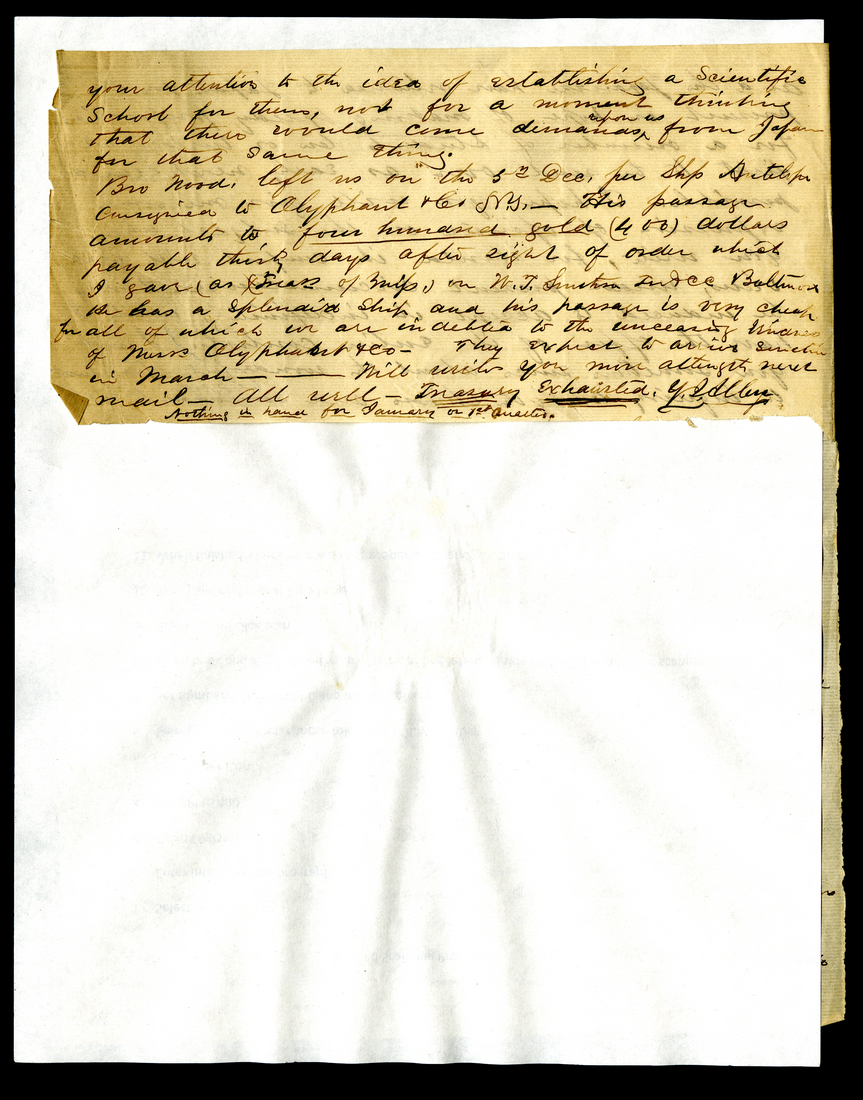 your attention to the idea of establishing a Scientific
School for them, not for a moment thinking
that there would come demands upon us from Japan
for that same thing.
Bro Wood, left us on the 5th Dec, per Shp Antelope
consigned to Olyphant & Co N.Y. — His passage
amounts to four hundred gold (400) dollars
payable thirty days after sight of order which
I gave (as Treas of Miss,) on W. T. Smithson Baltimore
He has a splendid Ship, and his passage is very cheap
for all of which we are indebted to the unceasing kindness
of Messrs Olyphant & Co — They expect to arrive sometime
in March — — Will write you more at length next
mail — All well — Treasury Exhausted. Y. J. Allen
Nothing in hand for January or 1st Quarter.